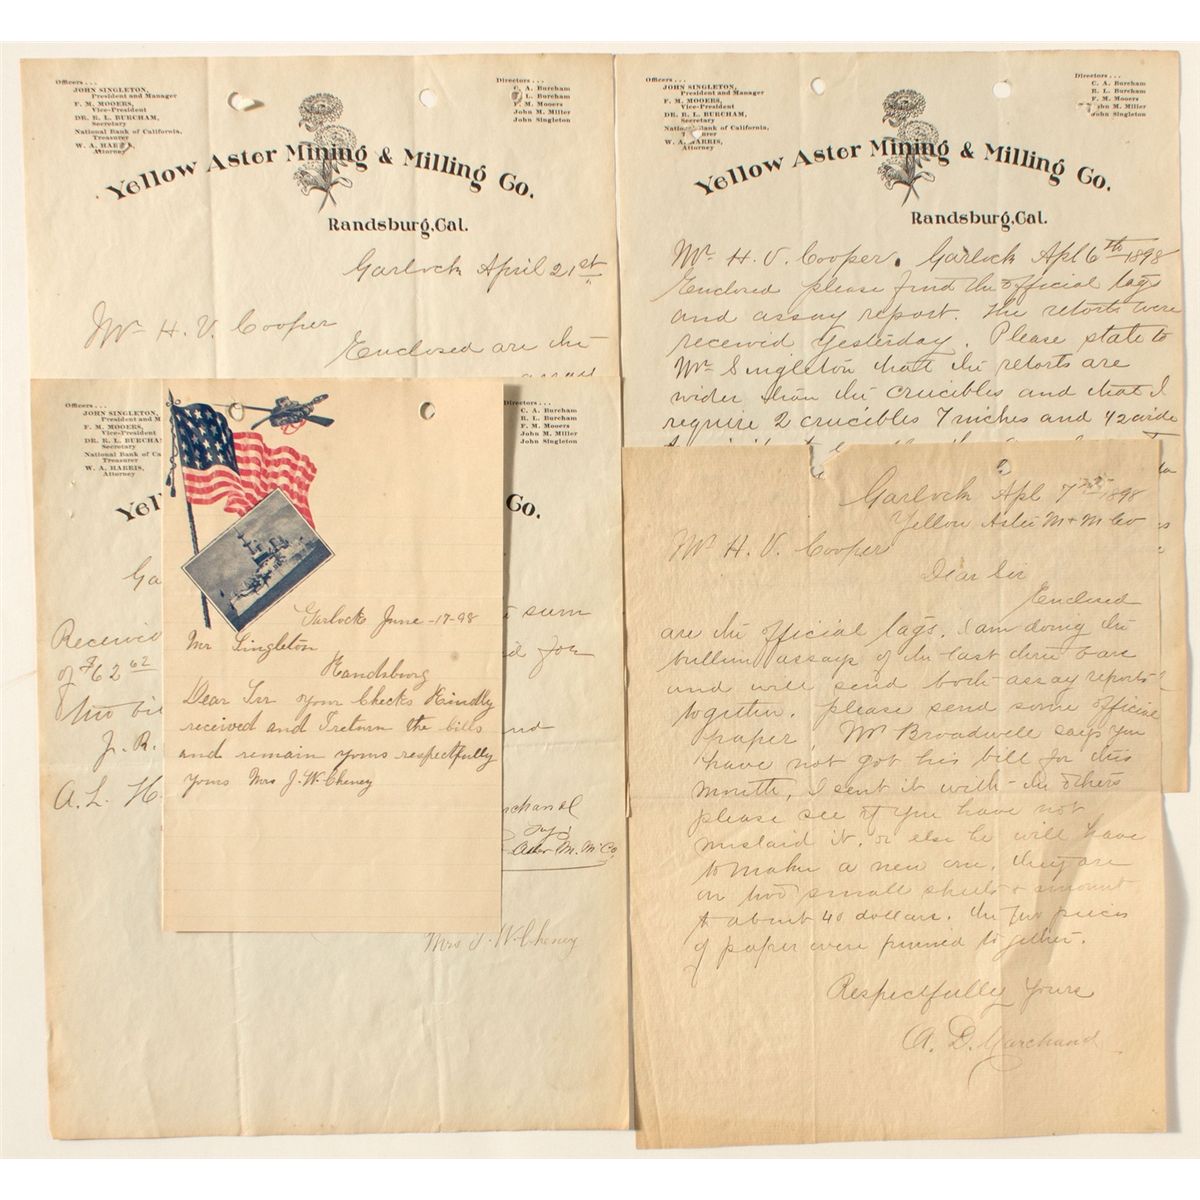 Officers . . .
JOHN SINGLETON,
President and Manager
F. M. MOOERS,
Vice-President
DR. R. L. BURCHAM,
Secretary
National Bank of California,
Treasurer
W. A. HARRIS,
Attorney
Directors . . .
C. A. Burcham
R. L. Burcham
F. M. Mooers
John M. Miller
John Singleton
Yellow Aster Mining & Milling Co.
Randsburg, Cal.
Garlock April 21st
Mr H. V. Cooper
Enclosed are the
assay
Officers . . .
JOHN SINGLETON,
President and Manager
F. M. MOOERS,
Vice-President
DR. R. L. BURCHAM,
Secretary
National Bank of California,
Treasurer
W. A. HARRIS,
Attorney
Directors . . .
C. A. Burcham
R. L. Burcham
F. M. Mooers
John M. Miller
John Singleton
Yellow Aster Mining & Milling Co.
Randsburg, Cal.
Mr. H. V. Cooper. Garlock Apl 6th 1898
Enclosed please find the official tags
and assay report. The retorts were
received yesterday. Please state to
Mr Singleton that the retorts are
wider than the crucibles and that I
require 2 crucibles 7 inches and 4 1/2 wide
Officers . . .
JOHN SINGLETON,
President and M
F. M. MOOERS,
Vice-President
DR. R. L. BURCHA
Secretary
National Bank of Ca
Treasurer
W. A. HARRIS,
Attorney
Directors . . .
C. A. Burcham
R. L. Burcham
F. M. Mooers
John M. Miller
John Singleton
Yel Co.
Ga
Receive sum
of $62 62 d for
two bil
J. R. nd
A. L. H
rchand
Aster M. M. Co.
Mrs J. W. Cheney
Garlock June -17-98
Mr Singleton
Randsburg
Dear Sir your Checks Kindly
received and I return the bills
and remain yours respectfully
yours Mrs J. W. Cheney
Garlock Apl 7th 1898
Yellow Aster M + M Co
Mr H. V. Cooper
Dear Sir
Enclosed
are the official tags. I am doing the
bullion assays of the last three bars
and will send both assay reports
together. please send some official
paper, Mr Broadwell says you
have not got his bill for this
month, I sent it with the others
please see if you have not
mislaid it. or else he will have
to make a new one, they are
on two small sheets + amount
to about 40 dollars. the two pieces
of paper were pinned together.
Respectfully Yours
A. D. Marchand